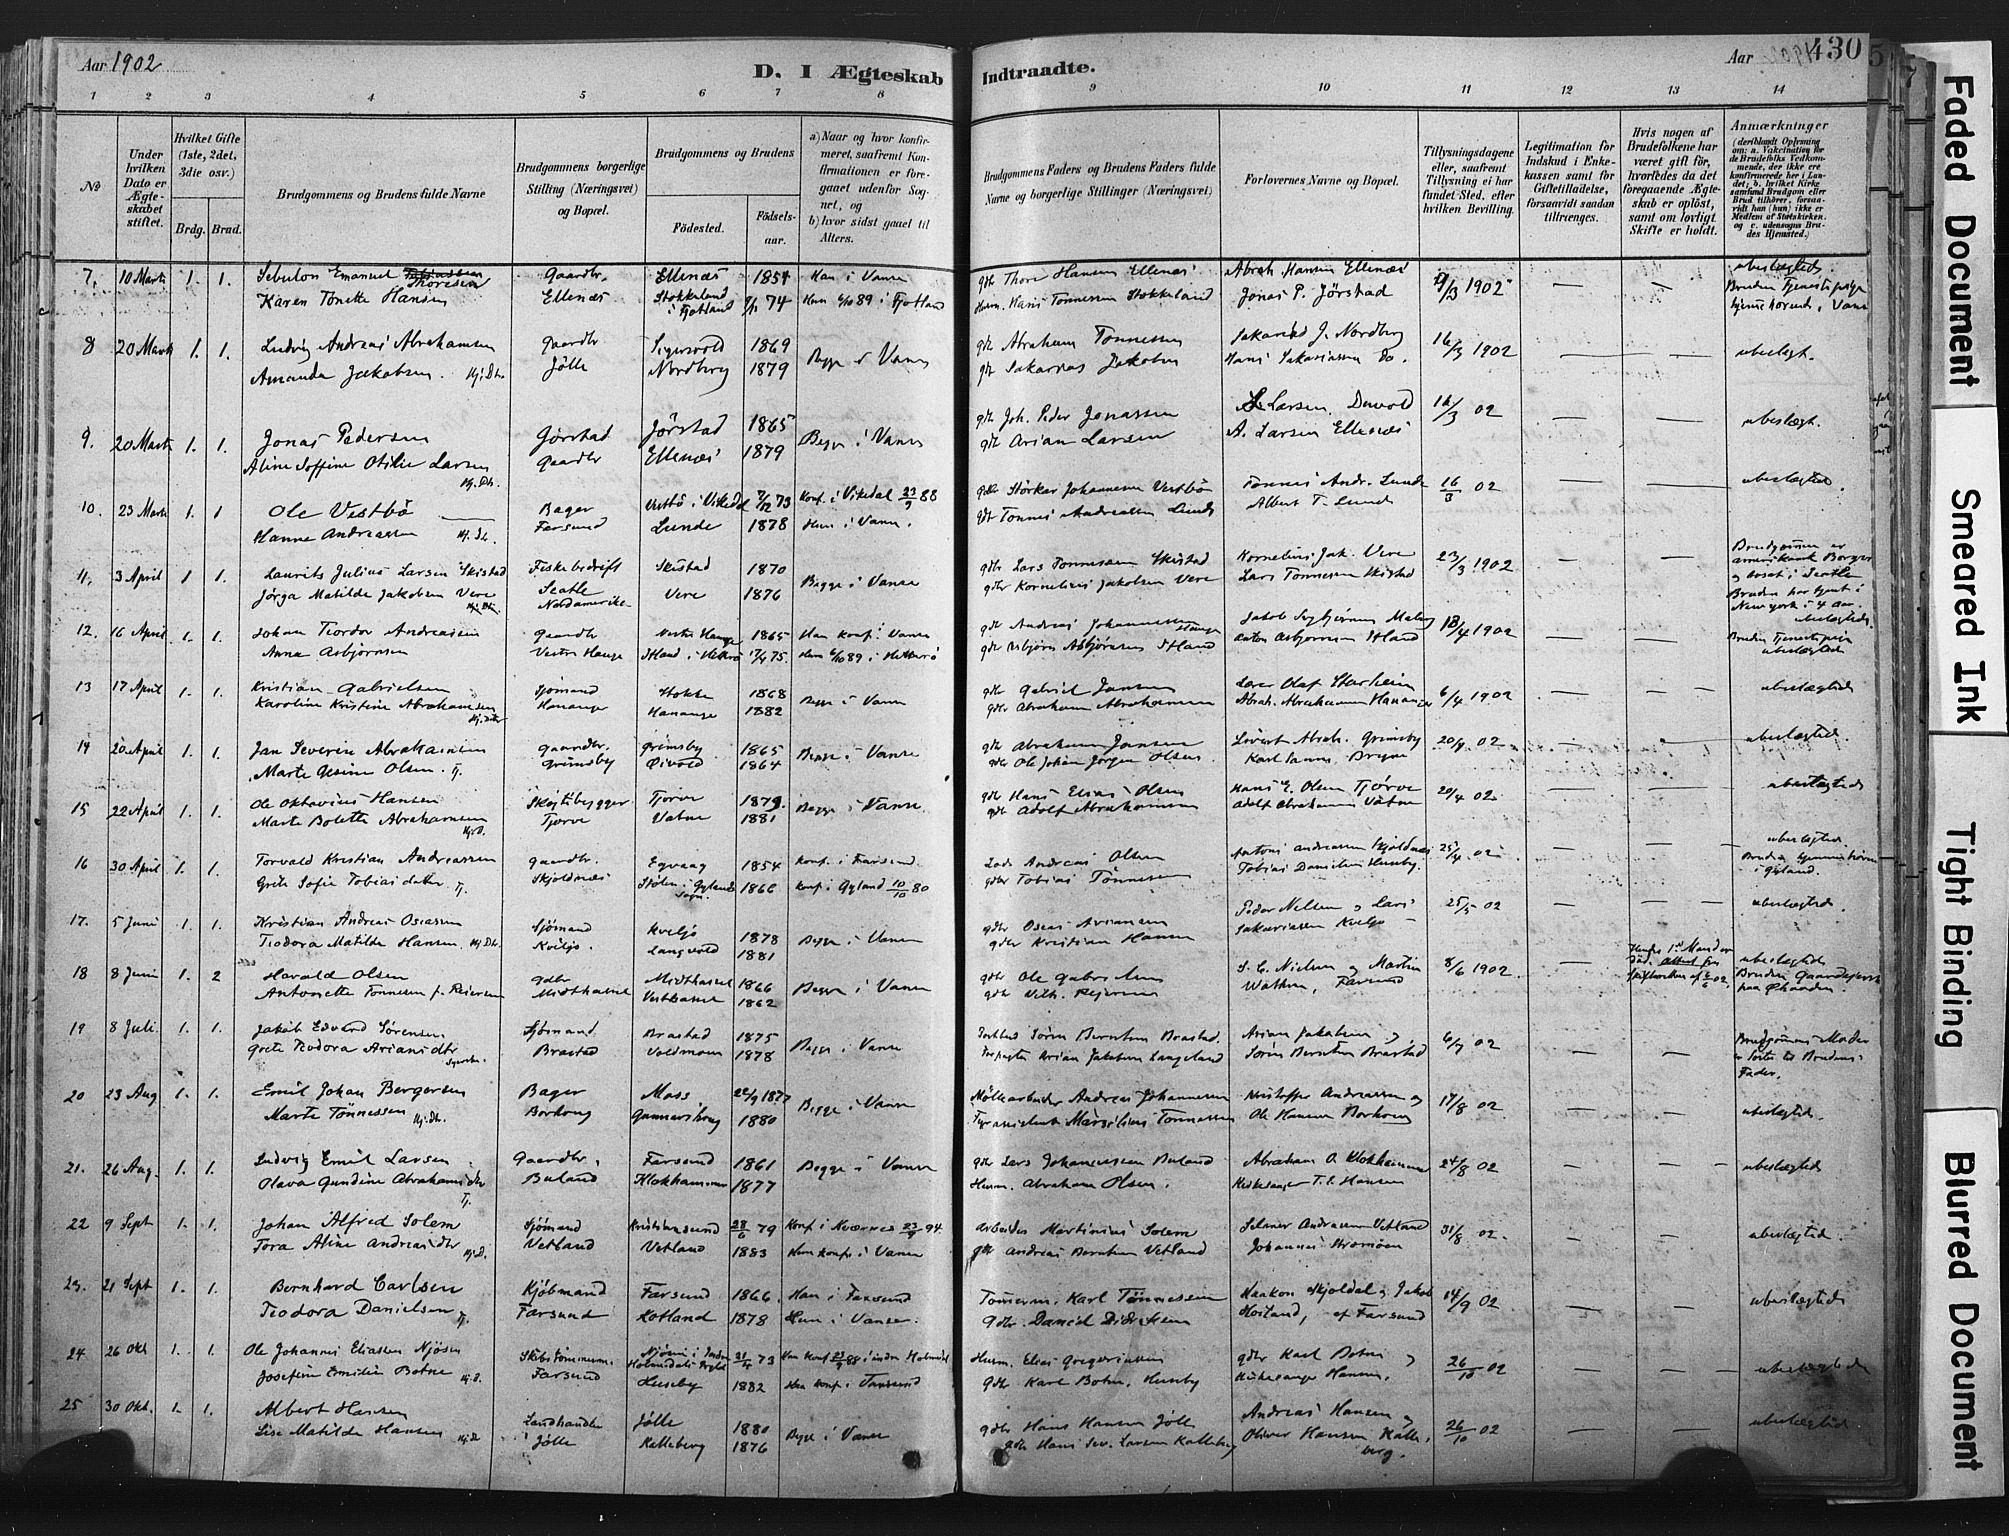 Aar 1902
D. I Ægteskab
Indtraadte.
Aar 1902
430
1 2 3 4 5 6 7 8 9 10 11 12 13 14
No
Under hvilken Dato er Ægteskabet stiftet.
Hvilket Gifte (1ste, 2det, 3die osv.)
Brdg. Brud.
Brudgommens og Brudens fulde Navne
Brudgommens borgerlige Stilling (Næringsvei) og Bopæl.
Brudgommens og Brudens
Fødested. Fødselsaar.
a) Naar og hvor konfirmeret, saafremt Konfirmationen er foregaaet udenfor Sognet, og
b) hvor sidst gaaet til Alters.
Brudgommens Faders og Brudens Faders fulde Navne og borgerlige Stillinger (Næringsvei)
Forlovernes Navne og Bopæl.
Tillysningsdagene eller, saafremt Tillysning ei har fundet Sted, efter hvilken Bevilling.
Legitimation for Indskud i Enkekassen samt for Giftetilladelse, forsaavidt saadan tiltrænges.
Hvis nogen af Brudefolkene har været gift før, hvorledes da det foregaaende Ægteskab er opløst, samt om lovligt Skifte er holdt.
Anmærkninger
(deriblandt Oplysning om: a. Vakcination for de Brudefolks Vedkommende, der ikke ere konfirmerede her i Landet; b. hvilket Kirkesamfund Brudgom eller Brud tilhører, forsaavidt han (hun) ikke er Medlem af Statskirken, og c. udensogns Brudes Hjemsted.)
7. 10 Marts 1. 1. Sebulon Emanuel Thoresen Gaardbr. Ellenæs 1854 Han i Vanse gdr Thore Hansen Ellenæs Abrah Hansen Ellenæs 9/3 1902 — — ubeslægtede.
Karen Tonette Hansen Ellenæs Stokkeland i Fjotland 74 Hun 6/10 89 i Fjotland Husm. Hans Tønnessen Stokkeland Jonas P. Jørstad Bruden Tjenestepige hjemmehørende i Vanse
8 20 Marts 1. 1. Ludvig Andreas Abrahamsen Gaardbr Sigersvold 1869 Begge i Vanse gdr Abraham Tønnessen Sakarias J. Nordberg 16/3 1902 — — ubeslægt.
Amanda Jakobsen. Hj. Dtr. Jølle Nordberg 1879 gdr Sakarias Jakobsen Hans Sakariassen do.
9. 20 Marts 1. 1. Jonas Pedersen Jørstad Jørstad 1865 Begge i Vanse gdr Joh. Peder Jonassen Larsen Duvold 16/3 02 — — ubeslægt.
Aline Soffine Otilie Larsen Hj. Dtr. Gaardbr Ellenæs 1879 gdr Arian Larsen A. Larsen Ellenæs
10. 23 Marts 1. 1 Ole Vestbø Bager Vestbø i Vikedal 7/12 73 Konf. i Vikedal 23/9 88 gdbr Størkar Johannesen Vestbø Tønnes Andr. Lunde 16/3 02 — — ubeslægtede
Hanne Andreassen Hj. D. Farsund Lunde 1878 Hun i Vanse. gdr Tønnes Andreassen Lunde Albert T. Lunde
11. 3 April 1 1. Laurits Julius Larsen Skistad Fiskebedrift Skistad 1870 Begge i Vanse gdbr Lars Tønnessen Skistad Kornelius Jak. Vere 23/3 1902 — — Brudgommen er amerikansk Borger og bosat i Seatle
Jørga Matilde Jakobsen Vere Hj. Dtr. Seatle Nordamerika Vere 1876 gdbr Kornelius Jakobsen Vere Lars Tønnessen Skistad Bruden har tjent i New york i 4 Aar. ubeslægtede.
12. 16 April 1. 1. Johan Teodor Andreassen Gaardbr Vestre Hauge 1865 Han Konf. i Vanse gdr Andreas Johannessen Hauge 13/4 1902 — —
Anna Asbjørnsen Vestre Hauge Itland i Hitterø 17/4 75. Hun 6/10 89 i Hitterø gdr Asbjørn Asbjørnsen Itland Anton Asbjørnsen Itland Bruden Tjenestepige ubeslægtede
13 17 April 1. 1. Kristian Gabrielsen Sjømand Stokke 1868 Begge i Vanse gdr Gabriel Jansen Lærer Olaf Starheim 6/4 1902 — — — ubeslægtede
Karoline Kristine Abrahamsen Hj. Datter Hananger Hananger 1882 gdbr Abraham Abrahamsen Abrah. Abrahamsen Hananger
14 20 April 1. 1. Jan Severin Abrahamsen Gaardbr. Grimsby 1865 Begge i Vanse gdr Abraham Jansen Abrah. Grimsby 20/4 02 — — ubeslægtede.
Marte Gesine Olsen. Tj. Grimsby Øivold 1864 gdbr Ole Johan Jørgen Olsen Karl Bryne
15 22 April 1. 1. Ole Oktavius Hansen Tjørve 1879. Begge i Vanse. gdr Hans Elias Olsen Hans E. Olsen Tjørve 20/4 02 — — ubeslægtede
Marte Bolette Abrahamsen Hj. D. Tjørve Vatne 1881 gdr Adolf Abrahamsen Adolf Abrahamsen Vatne
16 30 April 1. 1. Torvald Kristian Andreassen gaardbr. Egvaag 1854 Konf. i Farsund Lods Andreas Olsen Antoni Andreassen Skjoldnæs 25/4 02 — — ubeslægtede
Grete Sofie Tobiasdatter Tj. Skjoldnæs Stølen i Gylands Sogn. 1866 Konf. i Gyland 10/10 80 gdbr Tobias Tønnessen Tobias Danielsen Huseby. Bruden hjemmehørende i Gyland.
17. 5 Juni 1. 1. Kristian Andreas Oseassen Sjømand Kviljo 1878 Begge i Vanse gdbr Oseas Ariansen Peder Nielsen og Lars 25/5 02 — — ubeslægtede.
Teodora Matilde Hansen Hj. Dtr. Kviljo. Langvold 1881 gdbr Kristian Hansen Sakariassen Kviljo
18 8 Juni 1. 2 Harald Olsen gdbr Midthassel 1866 Begge i Vanse gdbr Ole Gabrielsen S. C. Nielsen og Martin 8/6 1902. — ubeslægtede
Antonette Tønnesen f. Reiersen Midthassel Vesthassel 1862 gdr Vilh. Reiersen Farsund Bruden Gaardejerske paa
19 8 Juli. 1. 1. Jakob Edvard Sørensen Sjømand Brastad 1875 Begge i Vanse Søren Berntsen Brastad. Arian Jakobsen og 6/7 02 — — Brudgommens Moder er Søster til Brudens Fader.
Grete Teodora Ariansdtr Brastad Voldmoen 1878 Arian Jakobsen Langeland Søren Berntsen Brastad
20 23 Aug 1. 1. Emil Johan Bergersen Bager Moss 22/9 1877 Begge i Vanse Møllearbeider Andreas Johannessen Kristoffer Andreassen og 17/8 02 — — ubeslægtede.
Marte Tønnessen Hj. Dtr. Borhoug Gunnarshoug 1880 Fyrassistent Marselius Tønnessen Ole Hansen Borhoug
21. 26 Aug. 1. 1. Ludvig Emil Larsen Gaardbr. Farsund 1861 Begge i Vanse gdr Lars Johannessen Buland Abraham O. Klokhammer 24/8 02 — — ubeslægtede
Olava Gundine Abrahamsdtr Tj. Buland Klokhammer 1877 Husm. Abraham Olsen. Kirkesanger T. E. Hansen
22 9 Sept 1. 1. Johan Alfred Solem Sjømand Kristiansund 28/6 79 Konf. i Kværnes 23/9 94. Arbeider Martinius Solem Selmer Andreassen Vetland 31/8 02. — — ubeslægtede.
Tora Aline Andreasdtr Hj. D. Vetland Vetland 1883 Hun konf. i Vanse gdr Andreas Berntsen Vetland Johannes Strømøen
23. 21 Sept 1. 1. Bernhard Carlsen Kjøbmand Farsund 1866. Han i Farsund Tømmerm. Karl Tønnessen Haakon Skjoldal og Jakob 14/9 02 — — ubeslægtede
Teodora Danielsen Tj. Farsund Kotland 1878 Hun i Vanse. Gdbr. Daniel Didriksen Hoiland, af Farsund
24 26 Okt 1. 1. Ole Johannes Eliassen Njøsen Skibstømmerm. Njøsen i Indre Holmedals 73 Han Konf. 88 i indre Holmedal Husm. Elias Gregoriussen gdbr Karl Botne og 26/10 02 — — ubeslægtede
Josefine Emilie Botne Hj. D. Farsund Huseby 1882 Hun konf. i Farsund Gdbr Karl Botne, Huseby Kirkesanger Hansen.
25 30 Okt. 1. 1. Albert Hansen Landhandler Jølle 1880 Begge i Vanse gdbr Hans Hansen Jølle Andreas Hansen og 26/10 02 — — ubeslægtede
Lise Matilde Hansen Hj. D i Jølle Kalleberg 1876 gdbr Hans Sev. Larsen Kalleberg Oliver Hansen Kalleberg.
Faded Document
Smeared Ink
Tight Binding
Blurred Document